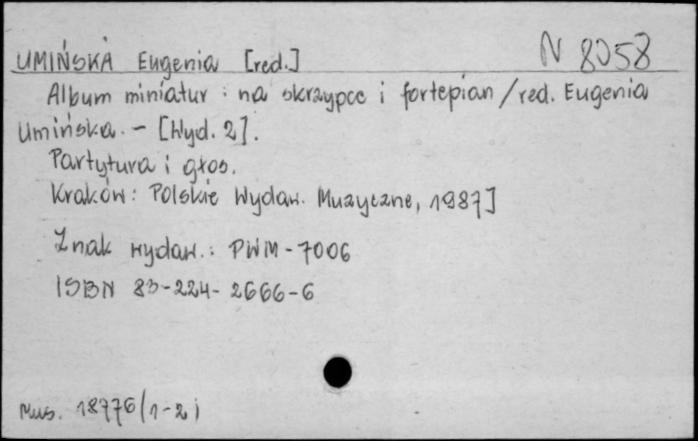 UMIŃSKA Eugenia [red.] N 8058
Album miniatur : na skrzypce i fortepian / red. Eugenia
Umińska. - [Wyd. 2].
Partytura i głos.
Kraków : Polskie Wydaw. Muzyczne, 1987]
Znak wydaw. : PWM - 7006
ISBN 83-224-2666-6
Mus. 18776/1-2 i